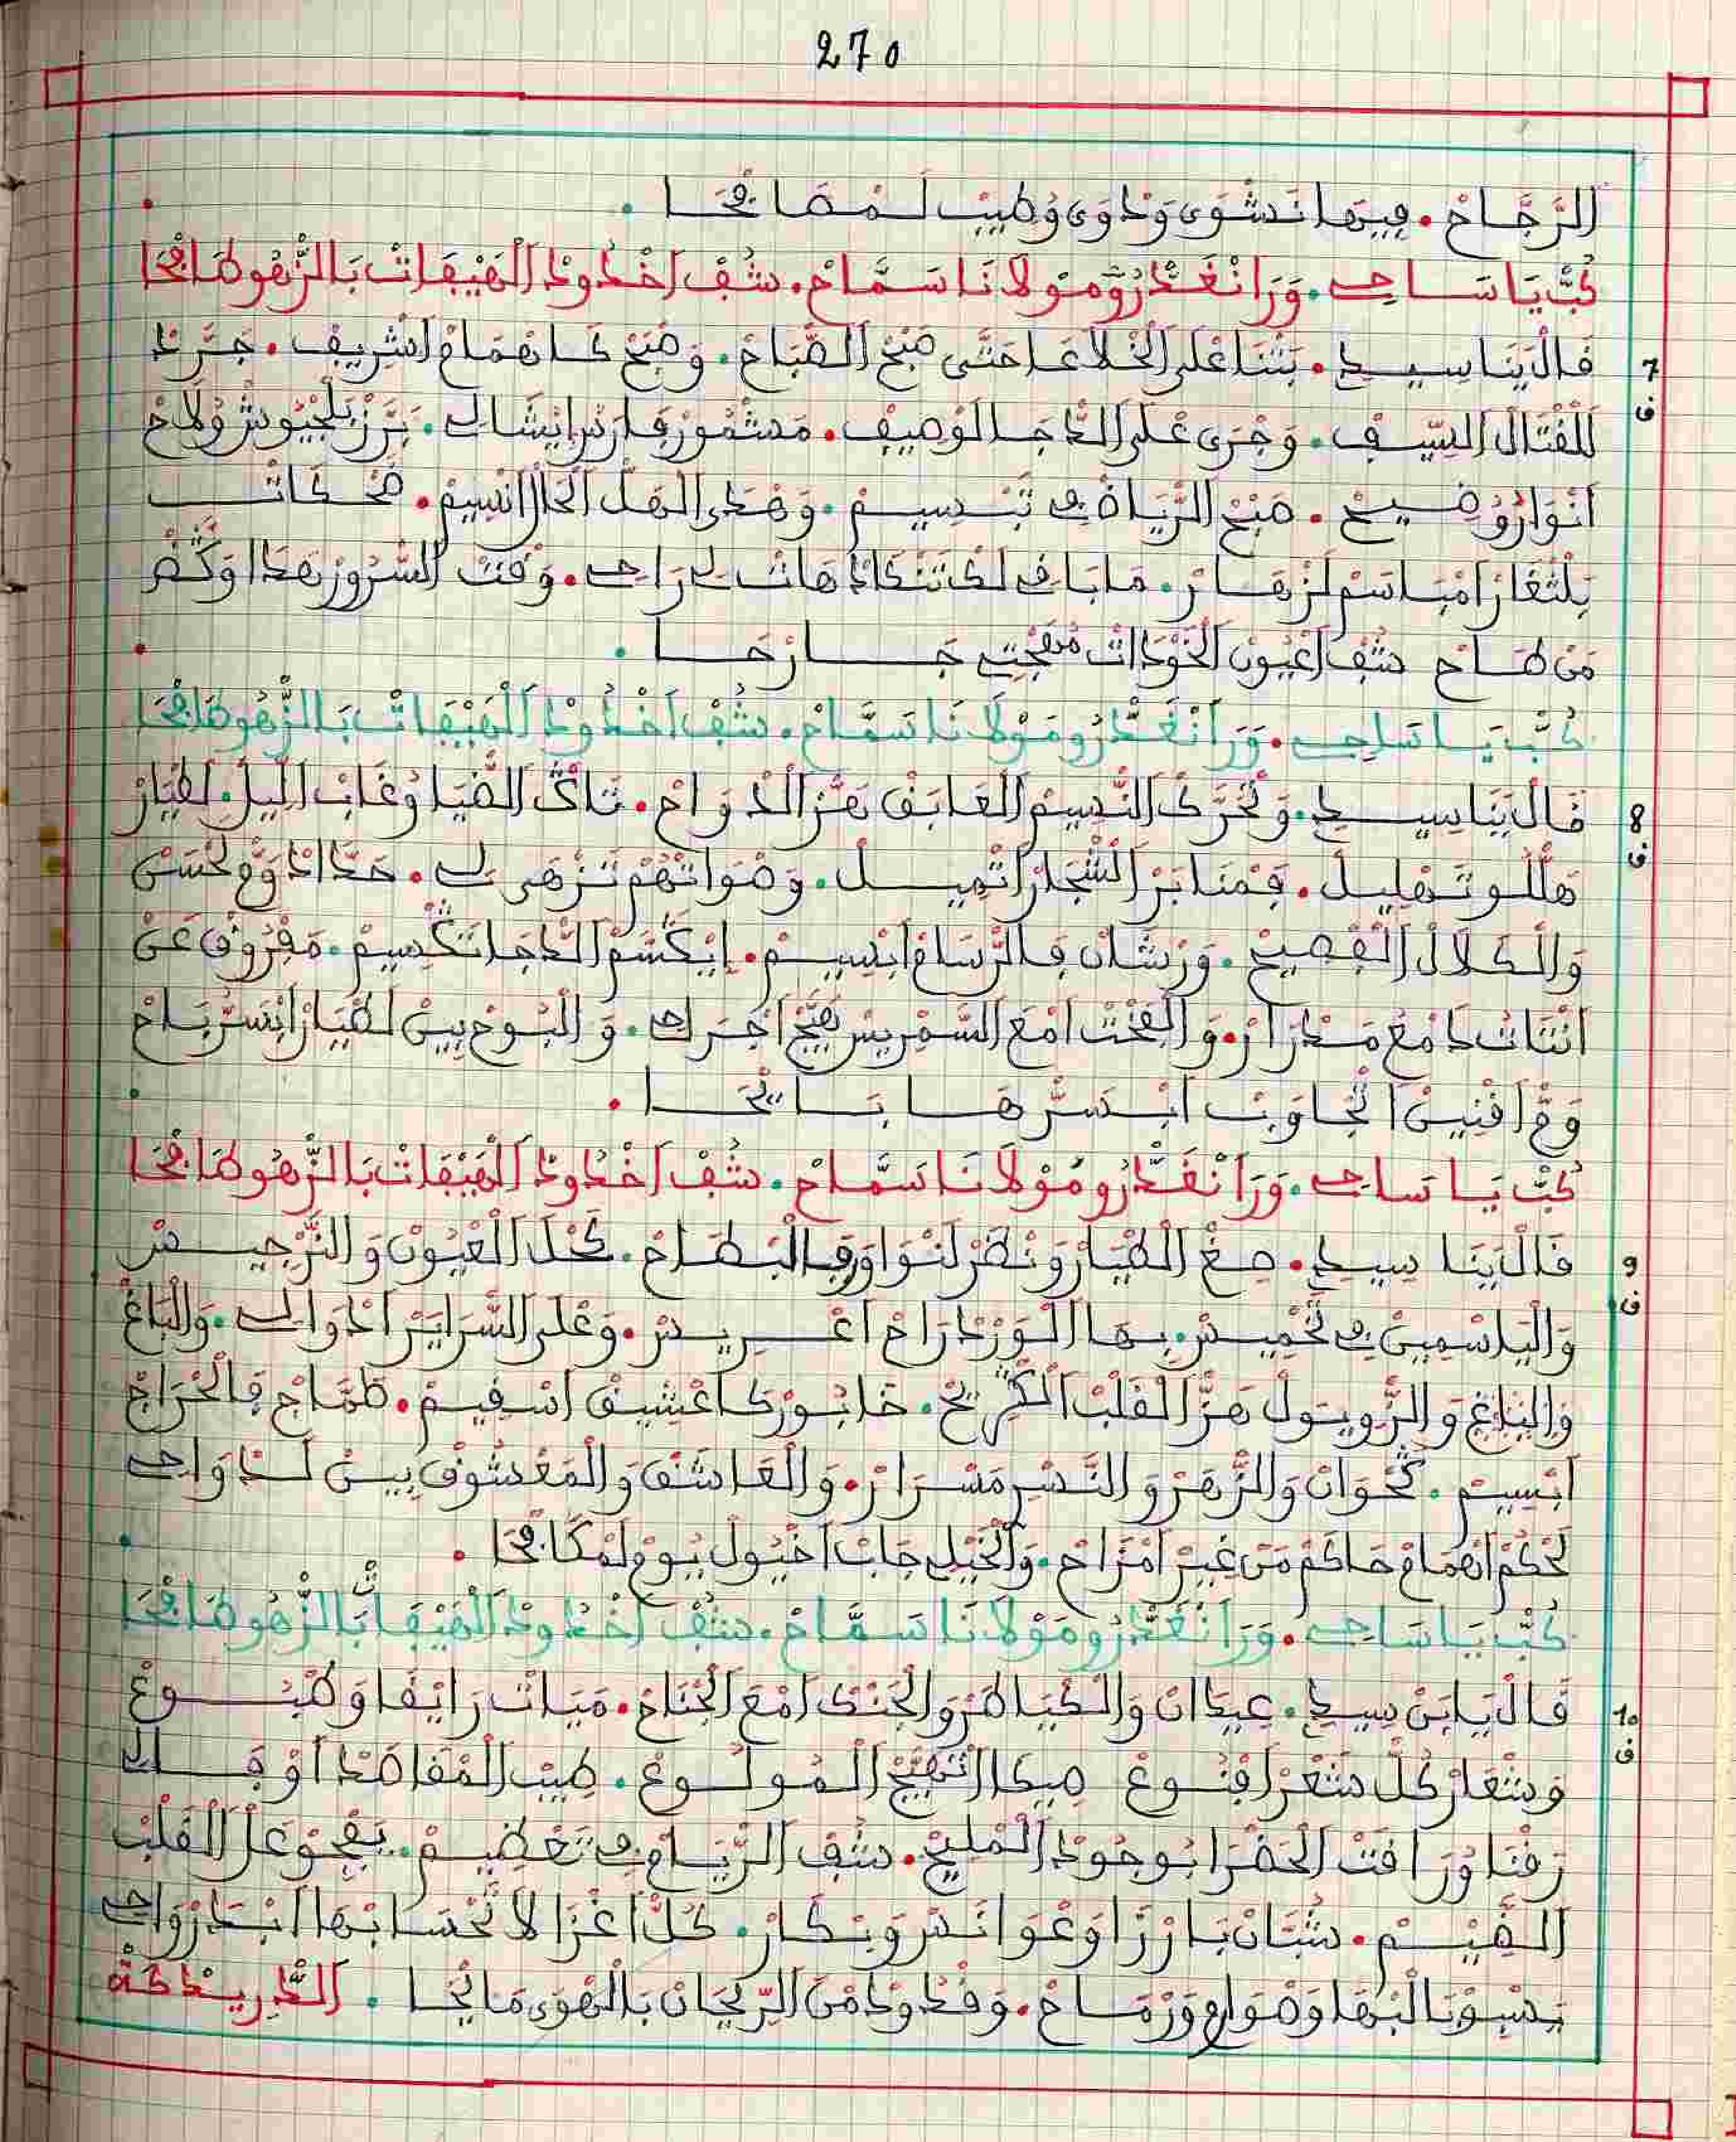 270
الرَّجَّاحْ. فِيهَا نَشْوَى وَدْوَى وُطِيبْ لَمْصَافْحَا.
كُبّْ يَا سَاحِي. وَرَا نْغَدْرُو مُولَانَا سَمَّاحْ. شُفْ اَخْدُودْ اَلْهَيْفَاتْ بَالزَّهُو طَافْحَا
7 ف قَالْ يَنَا سِيدِي. بَتْنَا عْلَى اَلْخْلَاعَا حَتَّى صْبَحْ اَلصّْبَاحْ. وَصْبَحْ كَا هْمَامْ اَشْرِيفْ. جَرَّدْ
لَلْقْتَالْ اَلسِّيفْ. وَجْرَى عْلَى اَلدّْجَا لَوْصِيفْ. مَشْمُورْ فَارَسْ اِيشَالِي. بَرَّزْ بَلْجْيُوشْ وُلَاحْ
اَنْوَارُو وْضِيحْ. صْبَحْ اَلرّْيَاضْ فِي تَبْسِيمْ. وَهْدَى اَلْهَلْ اَلْحَالْ اَنْسِيمْ. ضَحْكَاتْ
بَلْثْغَارْ اَمْبَاسَمْ لَزْهَارْ. مَا بَاقِي لَكْ تَنْكَادْ هَاتْ لِي رَاحِي. وَقْتْ اَلسّْرُورْ هَدَا وَكْفَرْ
مَنْ طَاحْ شُفْ اَعْيُونْ اَلْخَوْدَاتْ مُهْجْتِي جَارْحَا.
كُبّْ يَا سَاحِي. وَرَا نْغَدْرُو مَوْلَانَا سَمَّاحْ. شُفْ اَخْدُودْ اَلْهَيْفَاتْ بَالزَّهُو طَافْحَا
8 ف قَالْ يَنَا سِيدِي. وَتْحَرَّكْ اَلنّْسِيمْ اَلْعَابَقْ هَزْ اَلدْوَاحْ. تَاكْ اَلضّْيَا وُغَابْ اَللِّيلْ. لَطْيَارْ
هَلّْلُو تَهْلِيلْ. فَمْنَابَرْ اَلشّْجَارْ اَتْمِيلْ. وَصْوَاتْهُمْ تَزْهَى لِي. حَدَّادْ وَمْ لَحْسَنْ
وَالْكَلَالْ اَلْفْصِيحْ. وَرْشَانْ فَالرّْسَامْ اَبْسِيمْ. اِيْكَسَّمْ اَلدّْجَا تَكْسِيمْ. مَفْرُوقْ عَنْ
اَنْتَاتْ دَامْعْ مَدْرَارْ. وَالْفَخْتْ اَمْعَ اَلسَّمْرِيسْ هَيَّجْ اَجْرَاحِي. وَالْبُوحْ بِينْ لَطْيَارْ اَبْسَرْ بَاحْ
وَمْ اَفْنِينْ اَتْجَاوَبْ اَبْسَرْهَا بَايْحَا.
كُبّْ يَا سَاحِي. وَرَا نْغَدْرُو مُوْلَانَا سَمَّاحْ. شُفْ اَخْدُودْ اَلْهَيْفَاتْ بَالزَّهُو طَافْحَا
9 ف قَالْ يَنَا سِيدِي. صِغْ اَلْطْيَارْ وَنْظَرْ لَنْوَاوَرْ فَالْبْطَاحْ. كَحْلْ اَلْعْيُونْ وَالنَّرْجِيسْ
وَالْيَاسْمِينْ فِي تَخْمِيسْ. بِهَا اَلْوَرْدْ رَاحْ اَعْرِيسْ. وَعْلَى اَلسّْرَايَرْ اَدْوَالِي. وَالْبَاغْ
وَالْبْلَاغْ وَالزُّوبُولْ هَزْ اَلْقَلْبْ اَلْكْرِيحْ. خَابُورْ كَا عْشِيقْ اَسْقِيمْ. طَمَّاحْ فَالْحْرَاجْ
اَبْسِيمْ. كُحْوَانْ وَالزّْهَرْ وَالنَّسْرِ مَسْرَارْ. وَالْعَاشَقْ وَالْمَعْشُوقْ بِينْ لَدْوَاحِي
لَحْكُمْ اَهْمَامْ حَاكَمْ مَنْ غِيرْ اَمْزَاحْ. وَالْخَيْلِي جَابْ اَخْيُولْ يُومْ لَمْكَافْحَا.
كُبّْ يَا سَاحِي. وَرَا نْغَدْرُو مَوْلَانَا سَمَّاحْ. شُفْ اَخْدُودْ اَلْهَيْفَاتْ بَالزَّهُو طَافْحَا
10 ف قَالْ يَابَنْ سِيدِي. عِيدَانْ وَالْكْيَاطَرْ وَالْجَنْكْ اَمْعَ اَلْجْنَاحْ. مَيَاتْ رَايْقَا وَطْبُوعْ
وَشْعَارْ كُلّْ شَعْرْ اَفْنُوعْ صِيكَا اَتْهَيَّجْ اَلْمُولُوعْ. طِيبْ اَلْمْقَاصَدْ اَوْفَى لِي
رَقْنَا وُرَاقَتْ اَلْحَضْرَا بُوجُودْ اَلْمْلِيحْ. شُفْ اَلرّْيَامْ فِي تَعْضِيمْ. يَفْجُوْ عَلْ اَلْقَلْبْ
اَلضِّيمْ. شُبَّانْ بَارْزَا وَعْوَانَسْ وَبْكَارْ. كُلّْ اَغْزَالَا تَحْسَابْهَا اَبْدَرْ وَاحِي
يَسْبُونَا الْبْهَا وَصْوَارَمْ وَرْمَاحْ. وَقْدُودْ مَنْ اَلرِّيحَانْ بَالْهْوَى مَايْحَا. اَلدْرِيدْكَة